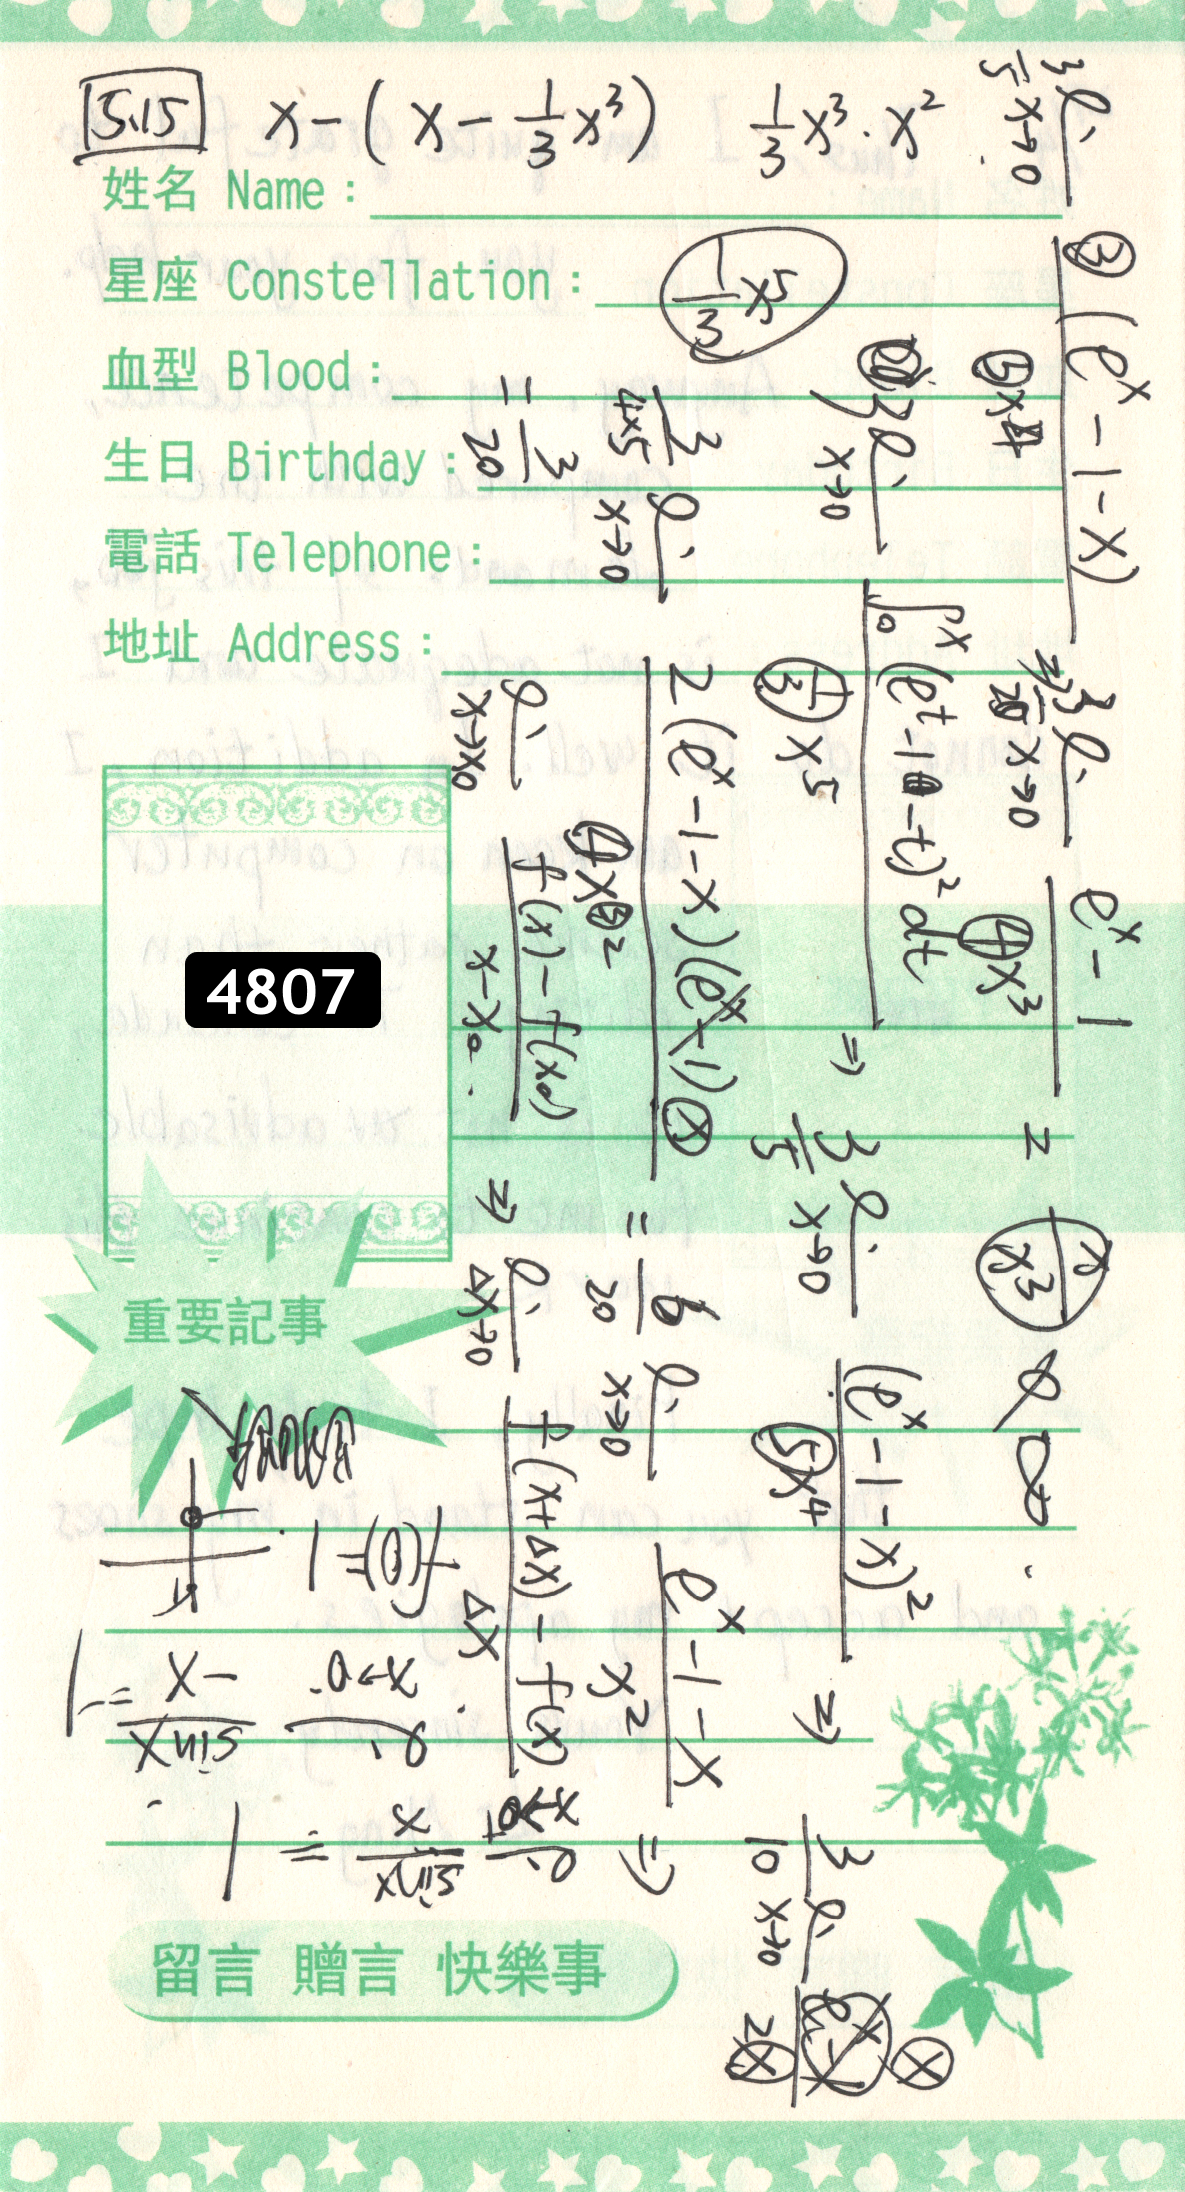 5.15 x-(x-1/3 x³) 1/3 x³·x²
姓名 Name：
星座 Constellation：
1/3 x⁵
血型 Blood：
生日 Birthday：
電話 Telephone：
地址 Address：
4807
重要記事
留言 贈言 快樂事
3/5 li x→0
③ (eˣ-1-x)
⇒ 3/20 li x→0 (eˣ-1)/(4x³) = x/x³ ∞
3 li x→0 ∫₀ˣ(eᵗ-1-t)²dt / (1/3 x⁵) ⇒ 3/5 li x→0 (eˣ-1-x)²/(5x⁴) ⇒
3/10 li x→0
3/(4×5) li x→0 2(eˣ-1-x)(eˣ-1) x = 6/20 li x→0 (eˣ-1-x)/x² ⇒
= 3/20
li x→x₀ (f(x)-f(x₀))/(x-x₀) ⇒ li Δx→0 (f(x+Δx)-f(x))/Δx
li x→0⁺ sinx/x = 1
li x→0⁻ sinx/-x = -1
f(0)=1